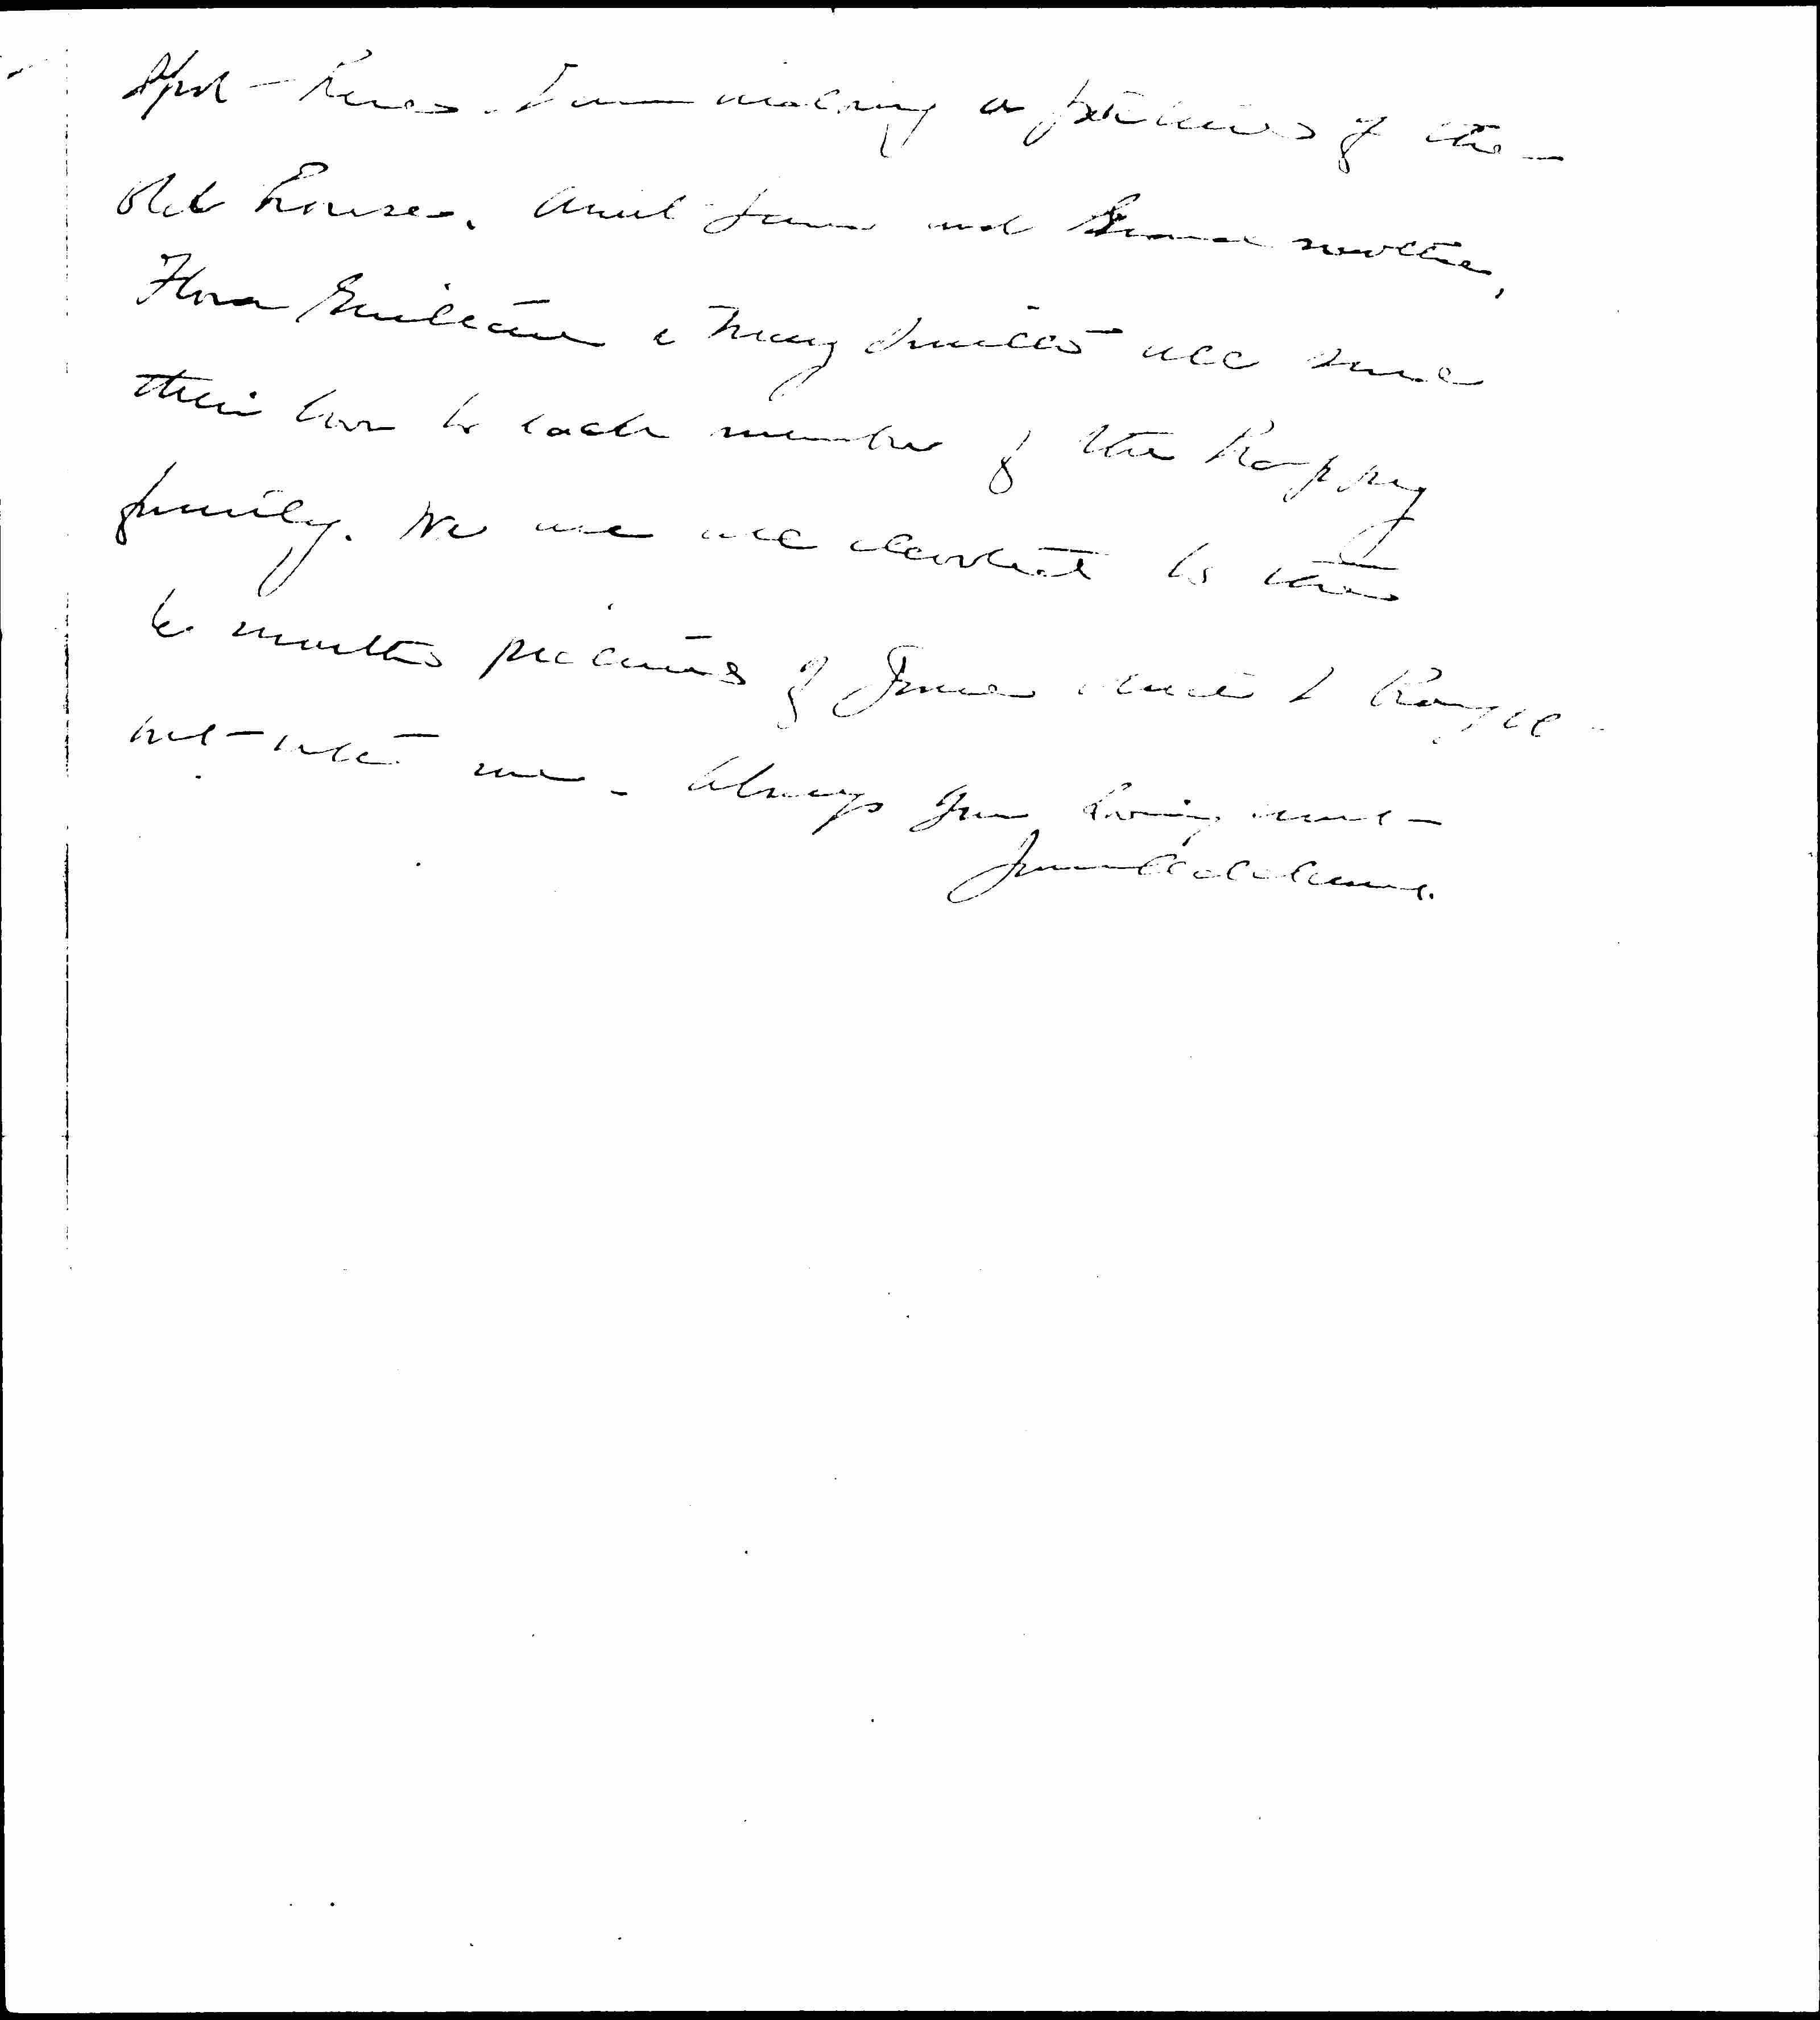 spot - here. I am making a picture of the -
old house. Aunt Jane and Grand mother,
Flora Guiteau & Mary Smith all send
their love to each member of the happy
family. We are all devoted to the
6 months pictures of Jane which I brought
with me. Always your loving aunt -
Jane Addams.